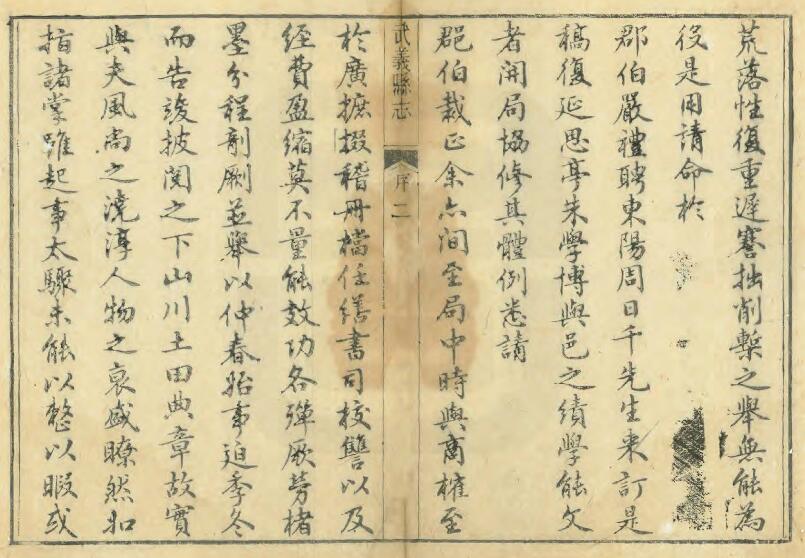 荒落性復重遲謇拙削槧之舉無能為
役是用請命於
郡伯嚴禮聘東陽周日千先生來訂是
稿復延思亭朱學博與邑之績學能文
者開局協修其體例悉請
郡伯裁正余亦间至局中時與商榷至
武義縣志
序二
於廣摭掇稽冊檔任繕書司校讐以及
經費盈縮莫不量能效功各殫厥勞楮
墨分程剞劂並舉以仲春始事迨季冬
而告竣披閱之下山川土田典章故實
與夫風尚之澆淳人物之衰盛瞭然如
指諸掌雖起事太驟未能以整以暇或